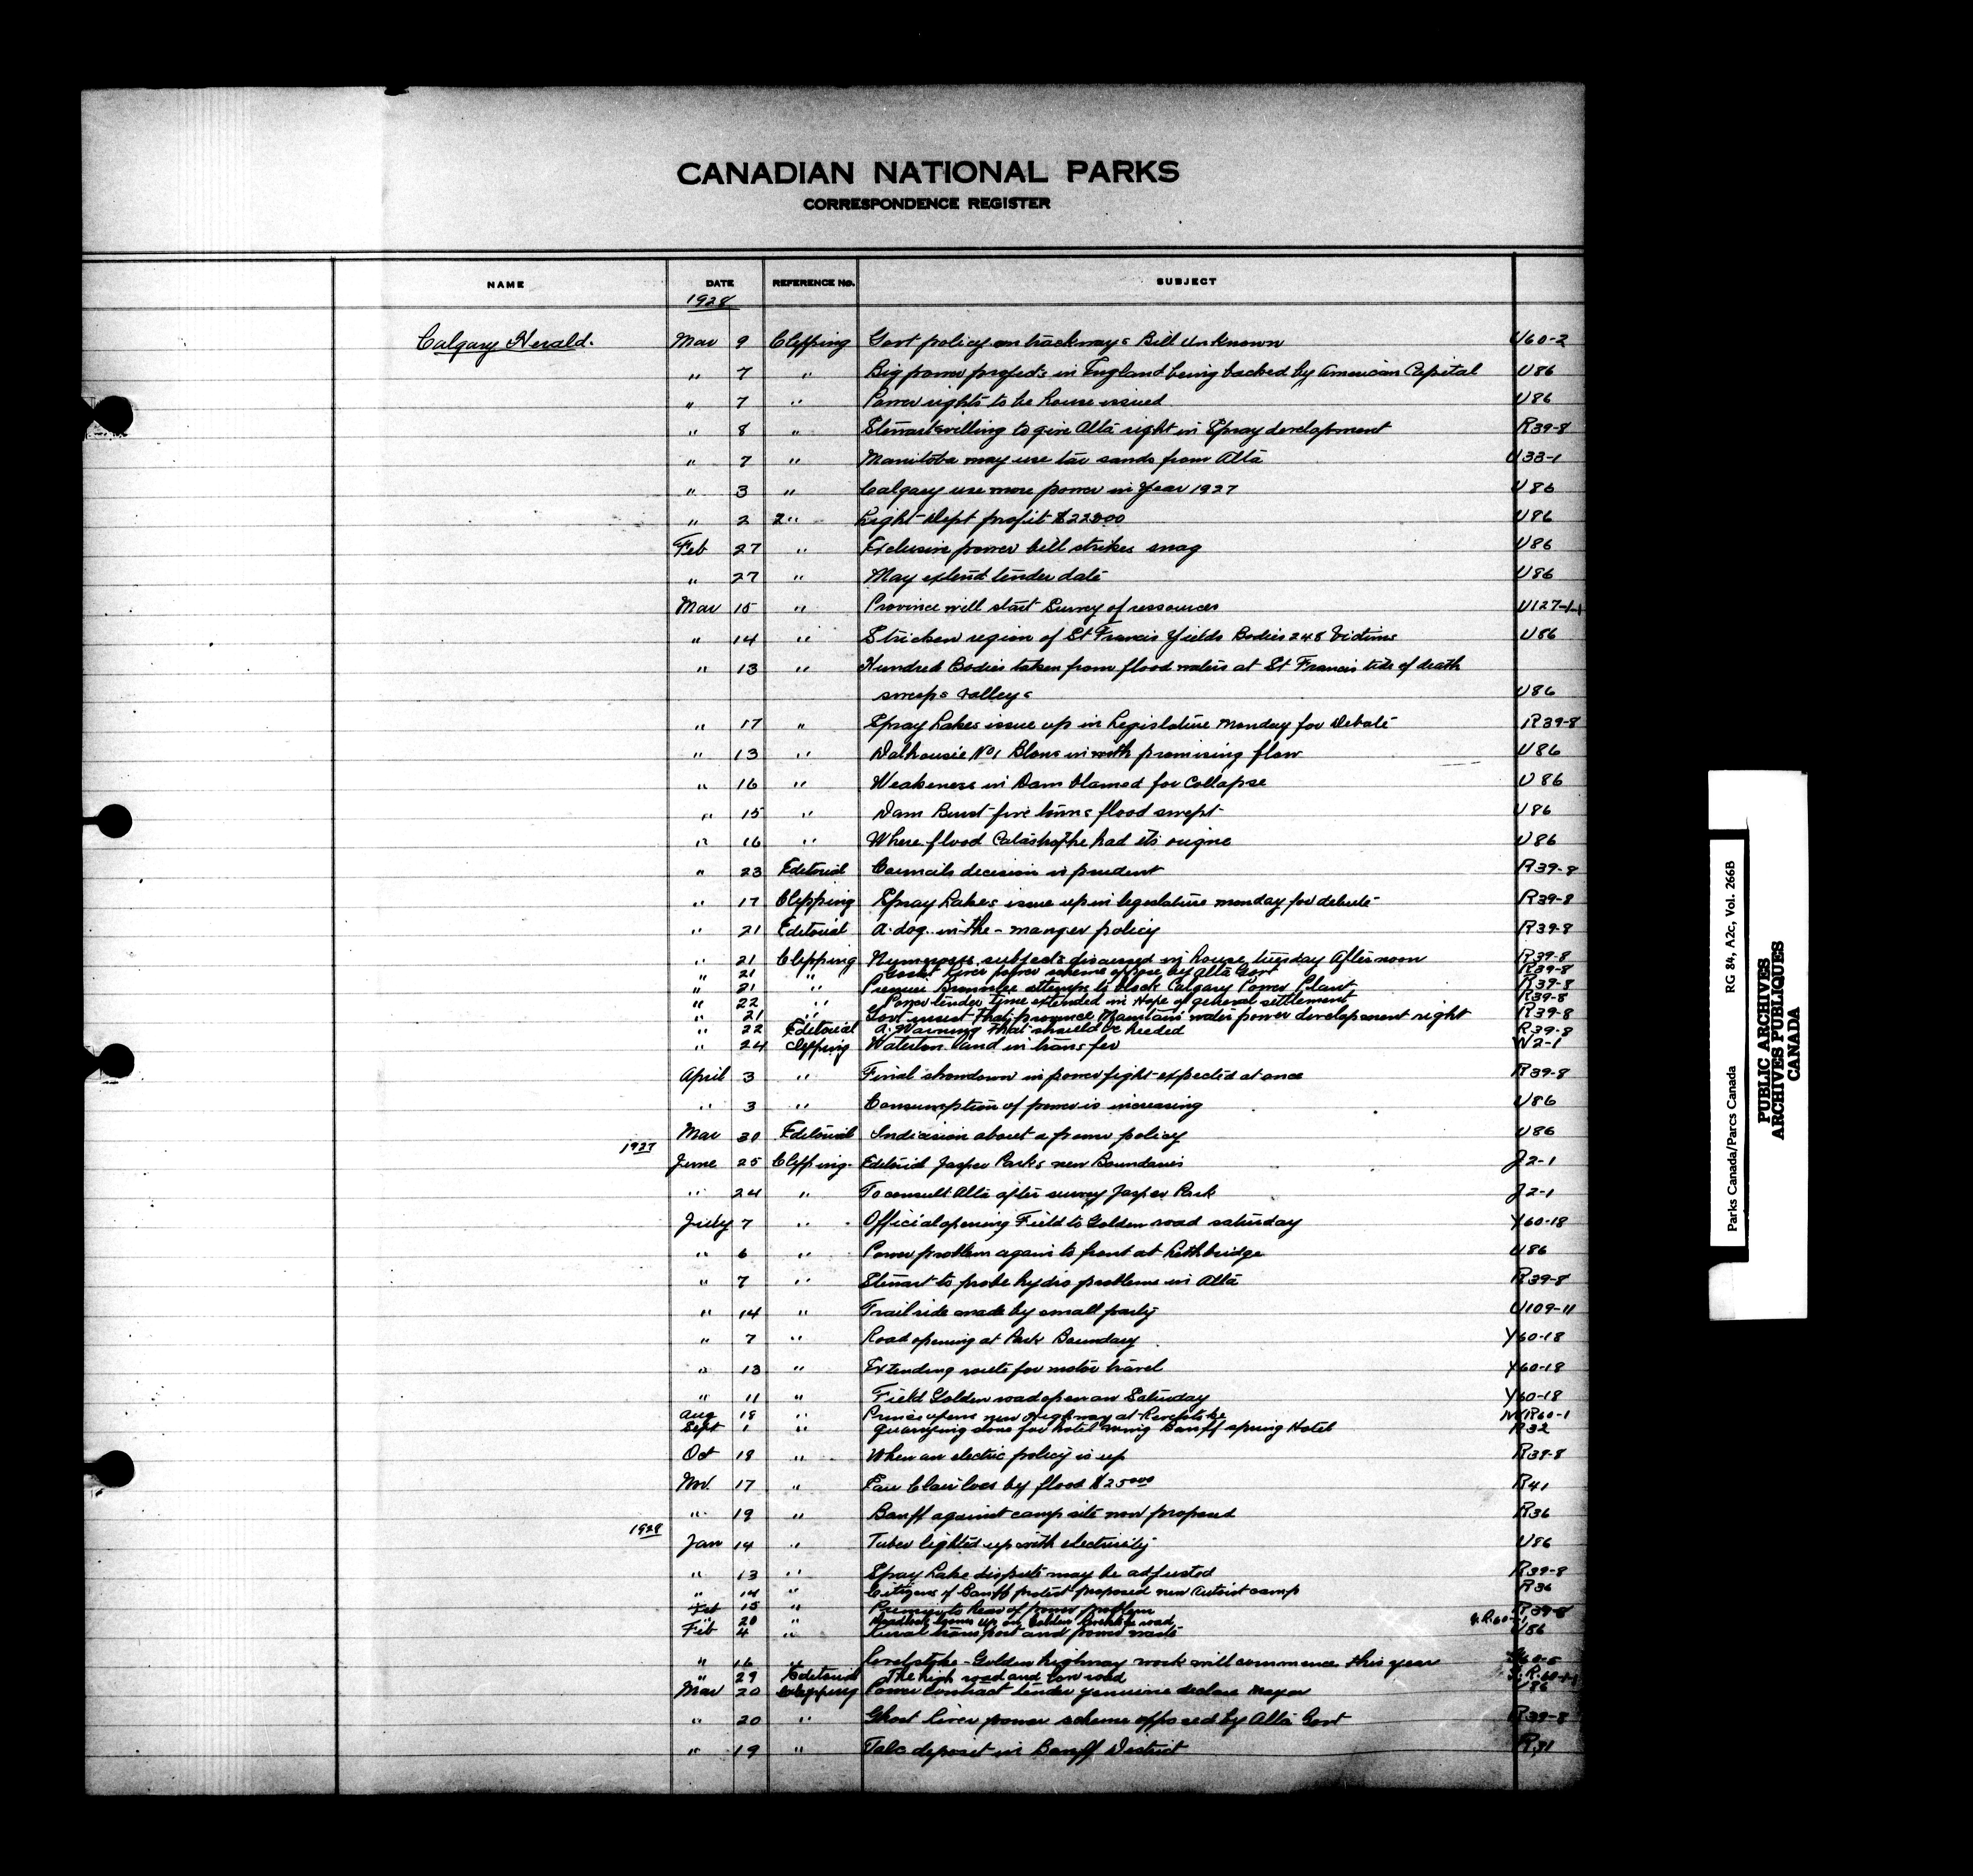 CANADIAN NATIONAL PARKS
CORRESPONDENCE REGISTER
NAME DATE REFERENCE No. SUBJECT
1928
Calgary Herald. Mar 9 Clipping Govt policy on trackways Bill Unknown U60-2
" 7 " Big power projects in England being backed by American Capital U86
" 7 " Power rights to be house issued U86
" 8 " Stewart willing to give Alta right in Spray development R39-8
" 7 " Manitoba may use tar sands from Alta U33-1
" 3 " Calgary use more power in Year 1927 U86
" 2 2 " Light Dept profit $22000 U86
Feb 27 " Exclusive power bill strikes snag U86
" 27 " May extend tender date U86
Mar 15 " Province will start Survey of ressources U127-1-1
" 14 " Stricken region of St Francis Yields Bodies 248 Victims U86
" 13 " Hundred Bodies taken from flood waters at St Francis tide of death
sweeps valleys U86
" 17 " Spray Lakes issue up in Legislature Monday for Debate R39-8
" 13 " Dalhousie No1 Blows in with promising flow U86
" 16 " Weakeness in Dam blamed for Collapse U86
" 15 " Dam Burst five towns flood swept U86
" 16 " Where flood Catastrophe had its origine U86
" 23 Editorial Councils decision is prudent R39-8
" 17 Clipping Spray Lakes issue up in legislature monday for debate R39-8
" 21 Editorial A-dog-in-the-manger policy R39-8
" 21 Clipping Numerous subjects discussed in house tuesday Afternoon R39-8
" 21 " Ghost River power scheme oppose by Alta Govt R39-8
" 21 " Premier Brownlee attempts to block Calgary Power Plant R39-8
" 22 " Power tender time extended in Hope of general settlement R39-8
" 21 " Govt insist that province Maintain water power development right R39-8
" 22 Editorial A Warning that should be heeded R39-8
" 24 Clipping Waterton land in transfer W2-1
April 3 " Final showdown in power fight expected at once R39-8
" 3 " Consumption of power is increasing U86
Mar 30 Editorial Indicision about a power policy U86
1927
June 25 Clipping Editorial Jasper Parks new Boundaries J2-1
" 24 " To consult Alta after survey Jasper Park J2-1
July 7 " Official opening Field to Golden road saturday Y60-18
" 6 " Power problem again to front at Lethbridge U86
" 7 " Stewart to probe hydro problems in Alta R39-8
" 14 " Trail ride made by small party U109-11
" 7 " Road opening at Park Boundary Y60-18
" 13 " Extending route for motor travel Y60-18
" 11 " Field Golden road open on Saturday Y60-18
Aug 18 " Prince opens new highway at Revelstoke MR60-1
Sept 1 " Quarrying done for hotel wing Banff spring Hotel R32
Oct 18 " When an electric policy is up R39-8
Nov. 17 " loss by flood $25000 R41
" 19 " Banff against camp site now proposed R36
1928
Jan 14 " Tuber lighted up with electricity U86
" 13 " Spray Lake dispute may be adjusted R39-8
" 14 " Citizens of Banff protest proposed new Autoist camp R36
Feb 15 " Premier to hear of power problem R39-8
" 20 " on Golden Revelstoke road
Feb 4 " Rural transport and power U86
" 16 " Revelstoke-Golden highway work will commence this year
" 29 Editorial The high road and low road
Mar 20 Clipping Power Contract tender genuine declare Mayor U86
" 20 " Ghost River power scheme opposed by Alta Govt R39-8
" 19 " Talc deposit in Banff District R31
Parks Canada/Parcs Canada RG 84, A2c, Vol. 266B
PUBLIC ARCHIVES
ARCHIVES PUBLIQUES
CANADA